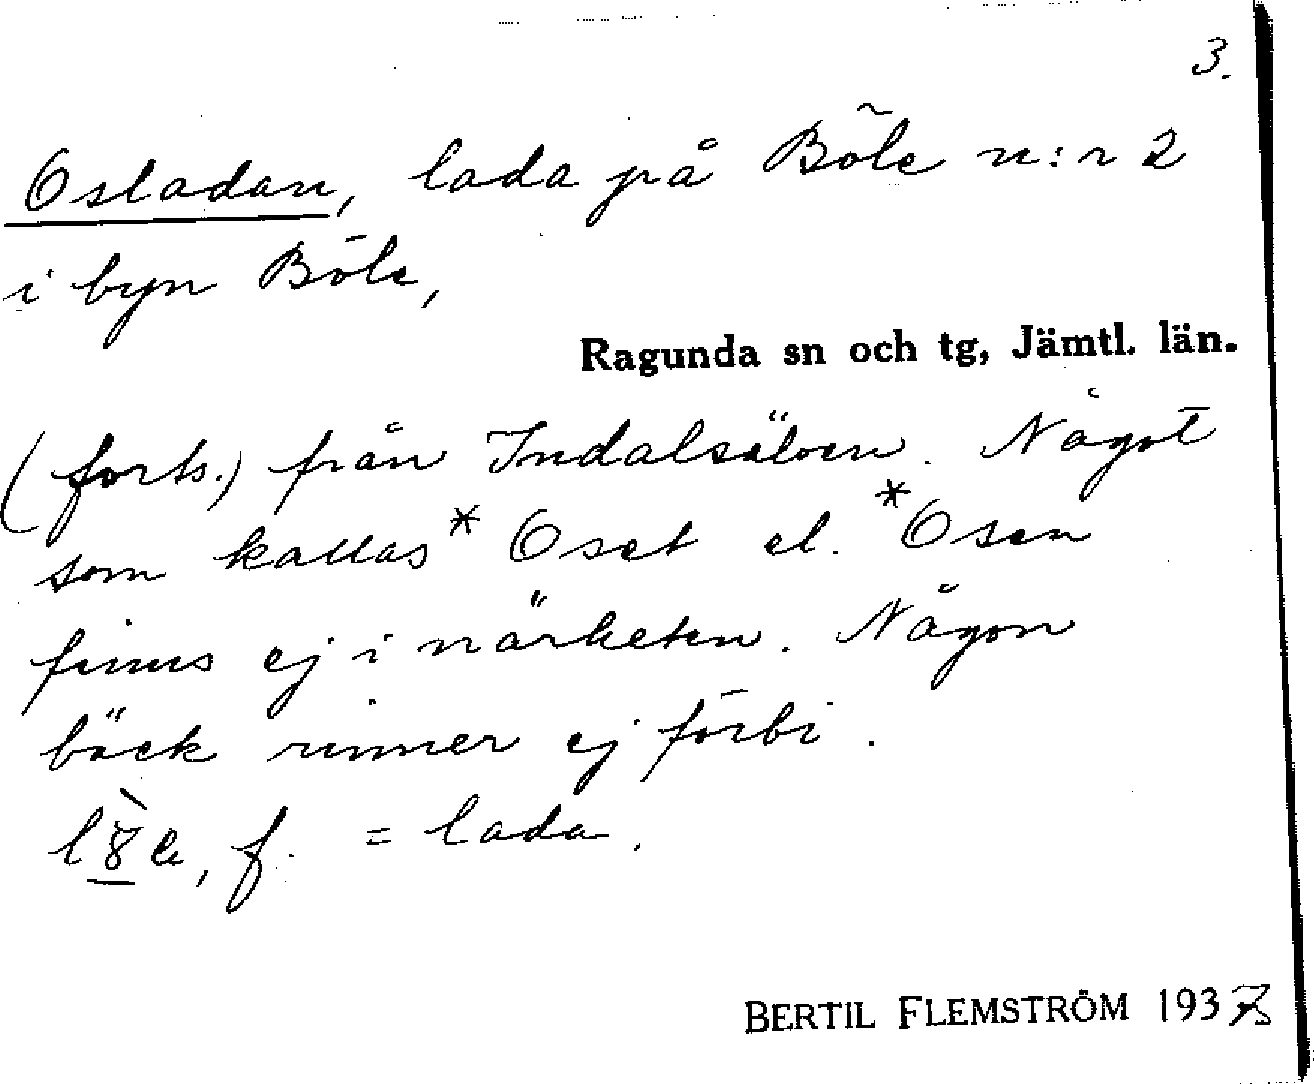 3.
Osladan, lada på Böle n:r 2
i byn Böle,
Ragunda sn och tg, Jämtl. län.
(forts.) från Indalsälven. Något
som kallas *Oset el. *Osen
finns ej i närheten. Någon
bäck rinner ej förbi.
f. = lada.
BERTIL FLEMSTRÖM 193